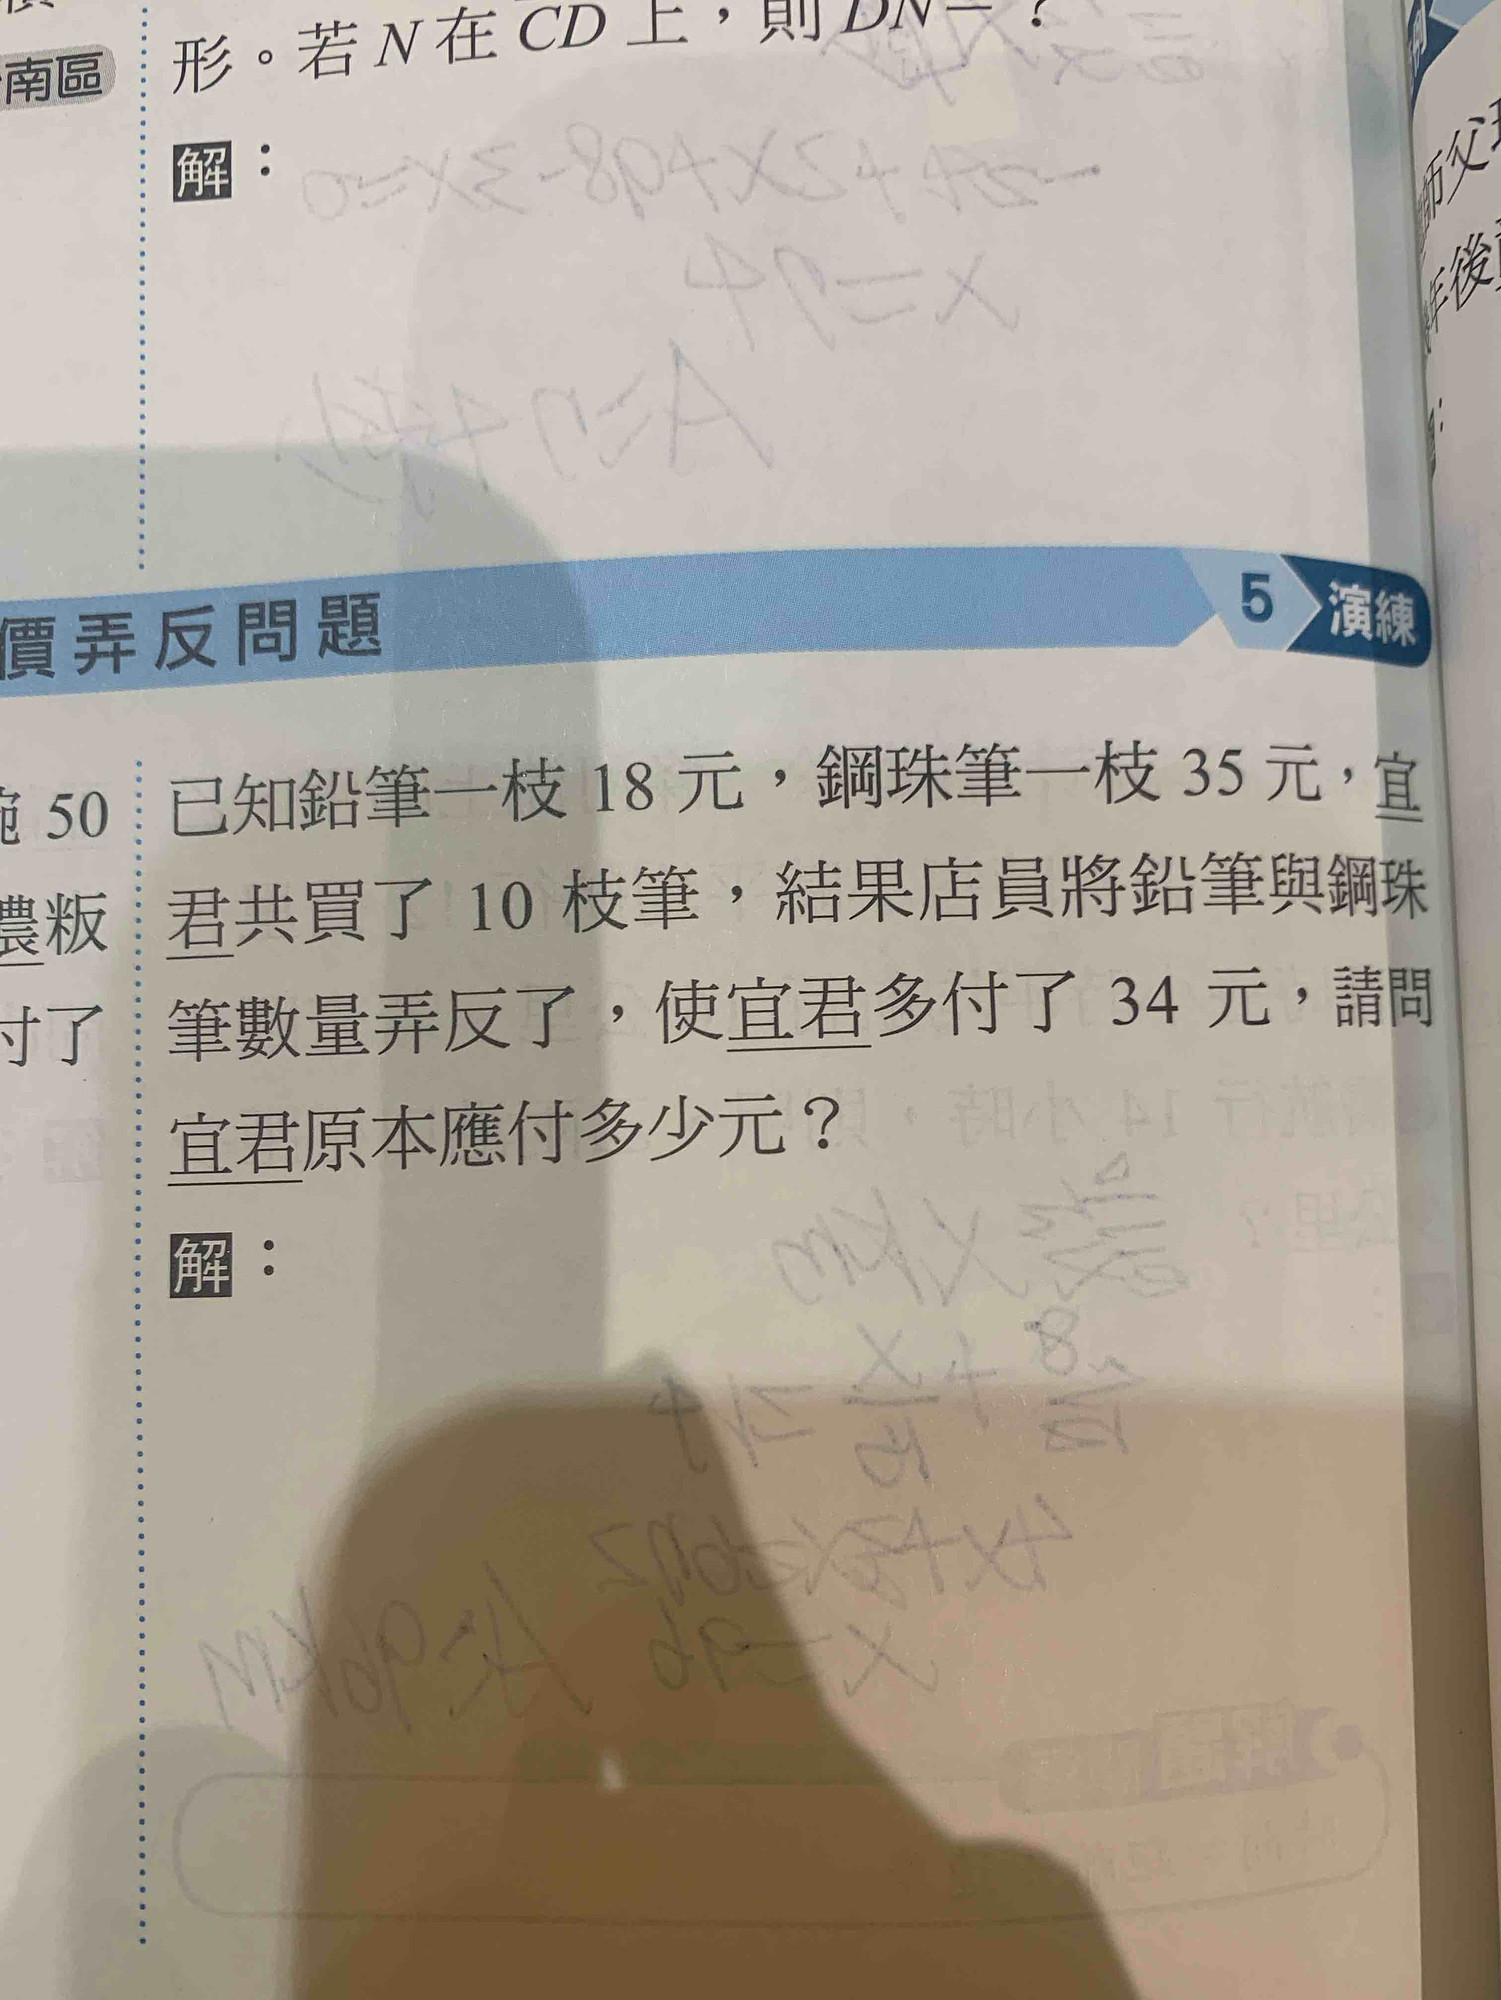 形。若 N 在 CD 上，則 DN = ？
南區
解：
價弄反問題
5 演練
已知鉛筆一枝 18 元，鋼珠筆一枝 35 元，宜
君共買了 10 枝筆，結果店員將鉛筆與鋼珠
筆數量弄反了，使宜君多付了 34 元，請問
宜君原本應付多少元？
解：
50
粄
付了
師父
年後